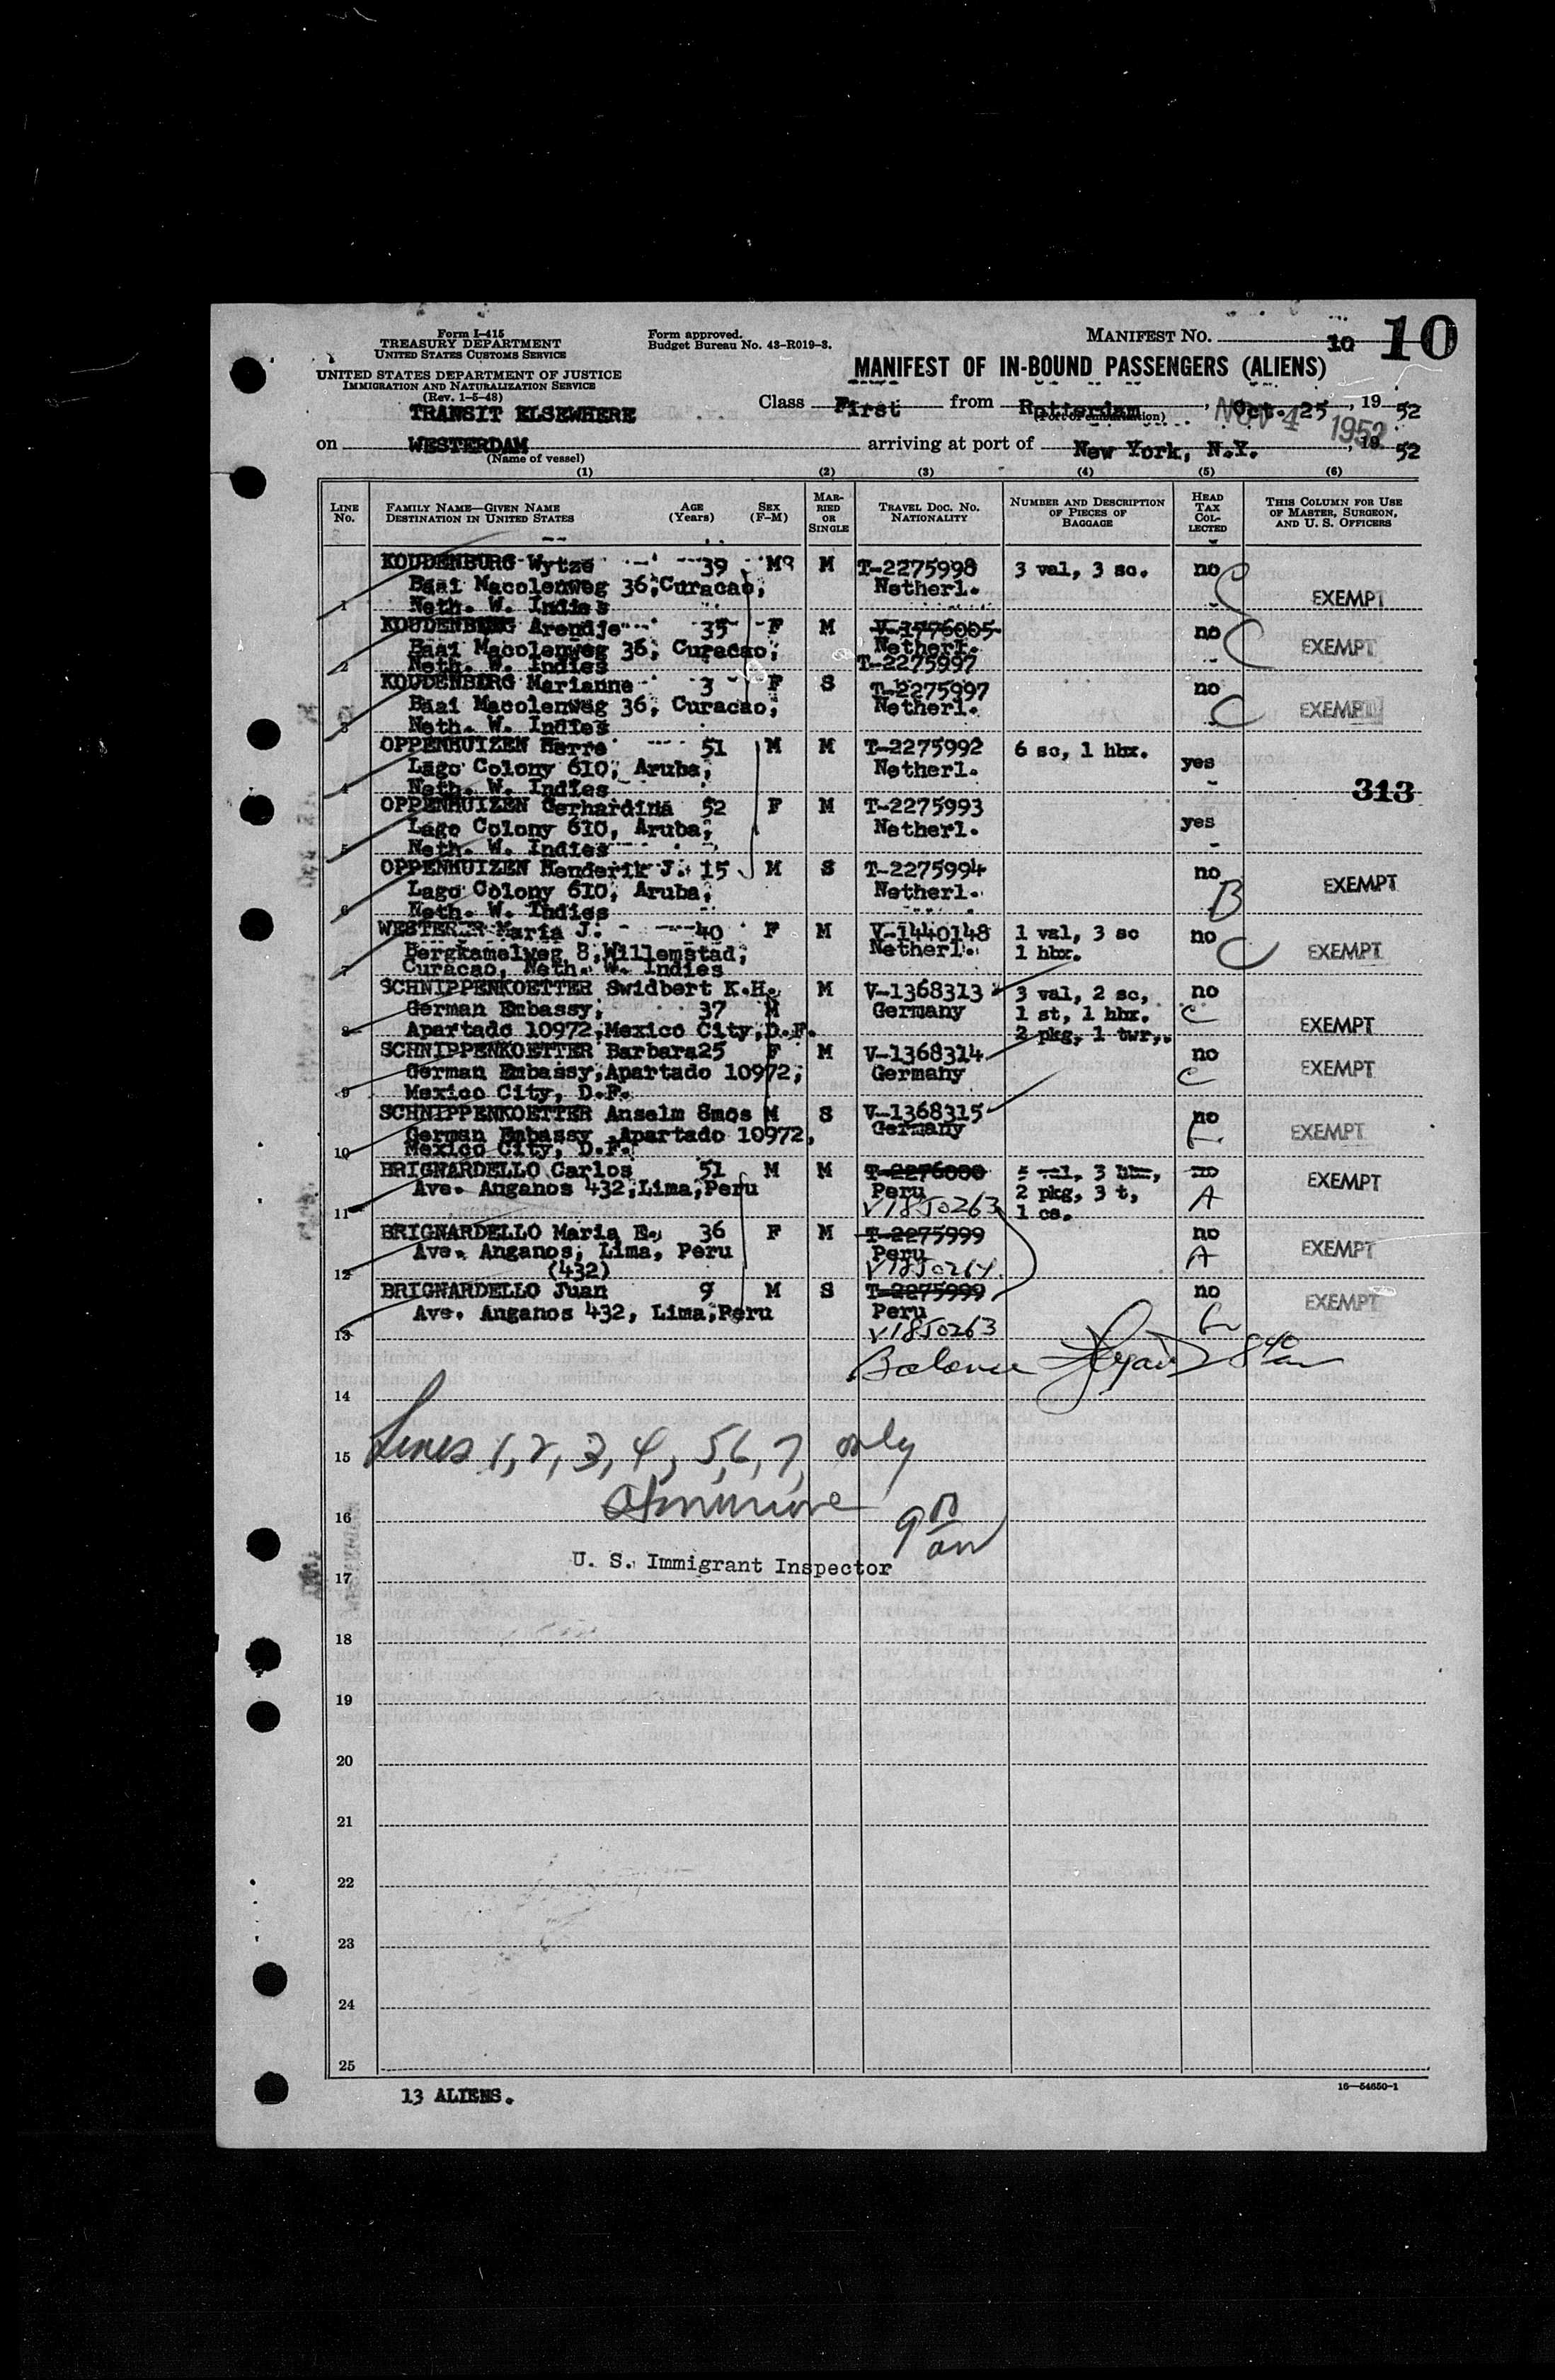 Form I-415
TREASURY DEPARTMENT
UNITED STATES CUSTOMS SERVICE
UNITED STATES DEPARTMENT OF JUSTICE
IMMIGRATION AND NATURALIZATION SERVICE
(Rev. 1-5-48)
TRANSIT ELSEWHERE
Form approved.
Budget Bureau No. 43-R019-3.
MANIFEST NO. 10 10
MANIFEST OF IN-BOUND PASSENGERS (ALIENS)
Class First from Rotterdam, Oct. 25, 1952
(Port of embarkation)
NOV 4 1952
on WESTERDAM arriving at port of New York, N.Y., 1952
(Name of vessel)
(1) (2) (3) (4) (5) (6)
LINE NO.
FAMILY NAME—GIVEN NAME
DESTINATION IN UNITED STATES
AGE (Years)
SEX (F-M)
MARRIED OR SINGLE
TRAVEL DOC. NO. NATIONALITY
NUMBER AND DESCRIPTION OF PIECES OF BAGGAGE
HEAD TAX COLLECTED
THIS COLUMN FOR USE OF MASTER, SURGEON, AND U. S. OFFICERS
KOUDENBURG Wytze 39 M M T-2275998 3 val, 3 sc. no
Baai Macolenweg 36, Curacao, Netherl. C
1 Neth. W. Indies EXEMPT
KOUDENBURG Arendje 35 F M V-1776005 no
Baai Macolenweg 36, Curacao, Netherl. C EXEMPT
2 Neth. W. Indies T-2275997
KOUDENBURG Marianne 3 F S T-2275997 no
Baai Macolenweg 36, Curacao, Netherl. C EXEMPT
3 Neth. W. Indies
OPPENHUIZEN Herre 51 M M T-2275992 6 sc, 1 hbx. yes
Lago Colony 610, Aruba, Netherl.
4 Neth. W. Indies 313
OPPENHUIZEN Gerhardina 52 F M T-2275993 yes
Lago Colony 610, Aruba, Netherl.
5 Neth. W. Indies
OPPENHUIZEN Henderik J. 15 M S T-2275994 no
Lago Colony 610, Aruba, Netherl. B EXEMPT
6 Neth. W. Indies
Maria J. 40 F M V-1440148 1 val, 3 sc no
Bergkamelweg 8, Willemstad, Netherl. 1 hbx. C EXEMPT
7 Curacao, Neth. W. Indies
SCHNIPPENKOETTER Swidbert K.H. M V-1368313 3 val, 2 sc, no
German Embassy, 37 M Germany 1 st, 1 hbx. C
8 Apartado 10972, Mexico City, D.F. 2 pkg, 1 twr,. EXEMPT
SCHNIPPENKOETTER Barbara 25 F M V-1368314 no
German Embassy, Apartado 10972, Germany C EXEMPT
9 Mexico City, D.F.
SCHNIPPENKOETTER Anselm 8mos M S V-1368315 no
German Embassy, Apartado 10972, Germany EXEMPT
10 Mexico City, D.F.
BRIGNARDELLO Carlos 51 M M T-2276000 val, 3 hbx, no
Ave. Anganos 432, Lima, Peru Peru 2 pkg, 3 t, A EXEMPT
11 V1850263 1 cs.
BRIGNARDELLO Maria E. 36 F M T-2275999 no
Ave. Anganos, Lima, Peru Peru A EXEMPT
12 (432) V1850264
BRIGNARDELLO Juan 9 M S T-2275999 no
Ave. Anganos 432, Lima, Peru Peru EXEMPT
13 V1850263
Balance 8 40 am
14
15 Lines 1, 2, 3, 4, 5, 6, 7, only
16 9 00 am
U. S. Immigrant Inspector
17
18
19
20
21
22
23
24
25
13 ALIENS.
16—54650-1